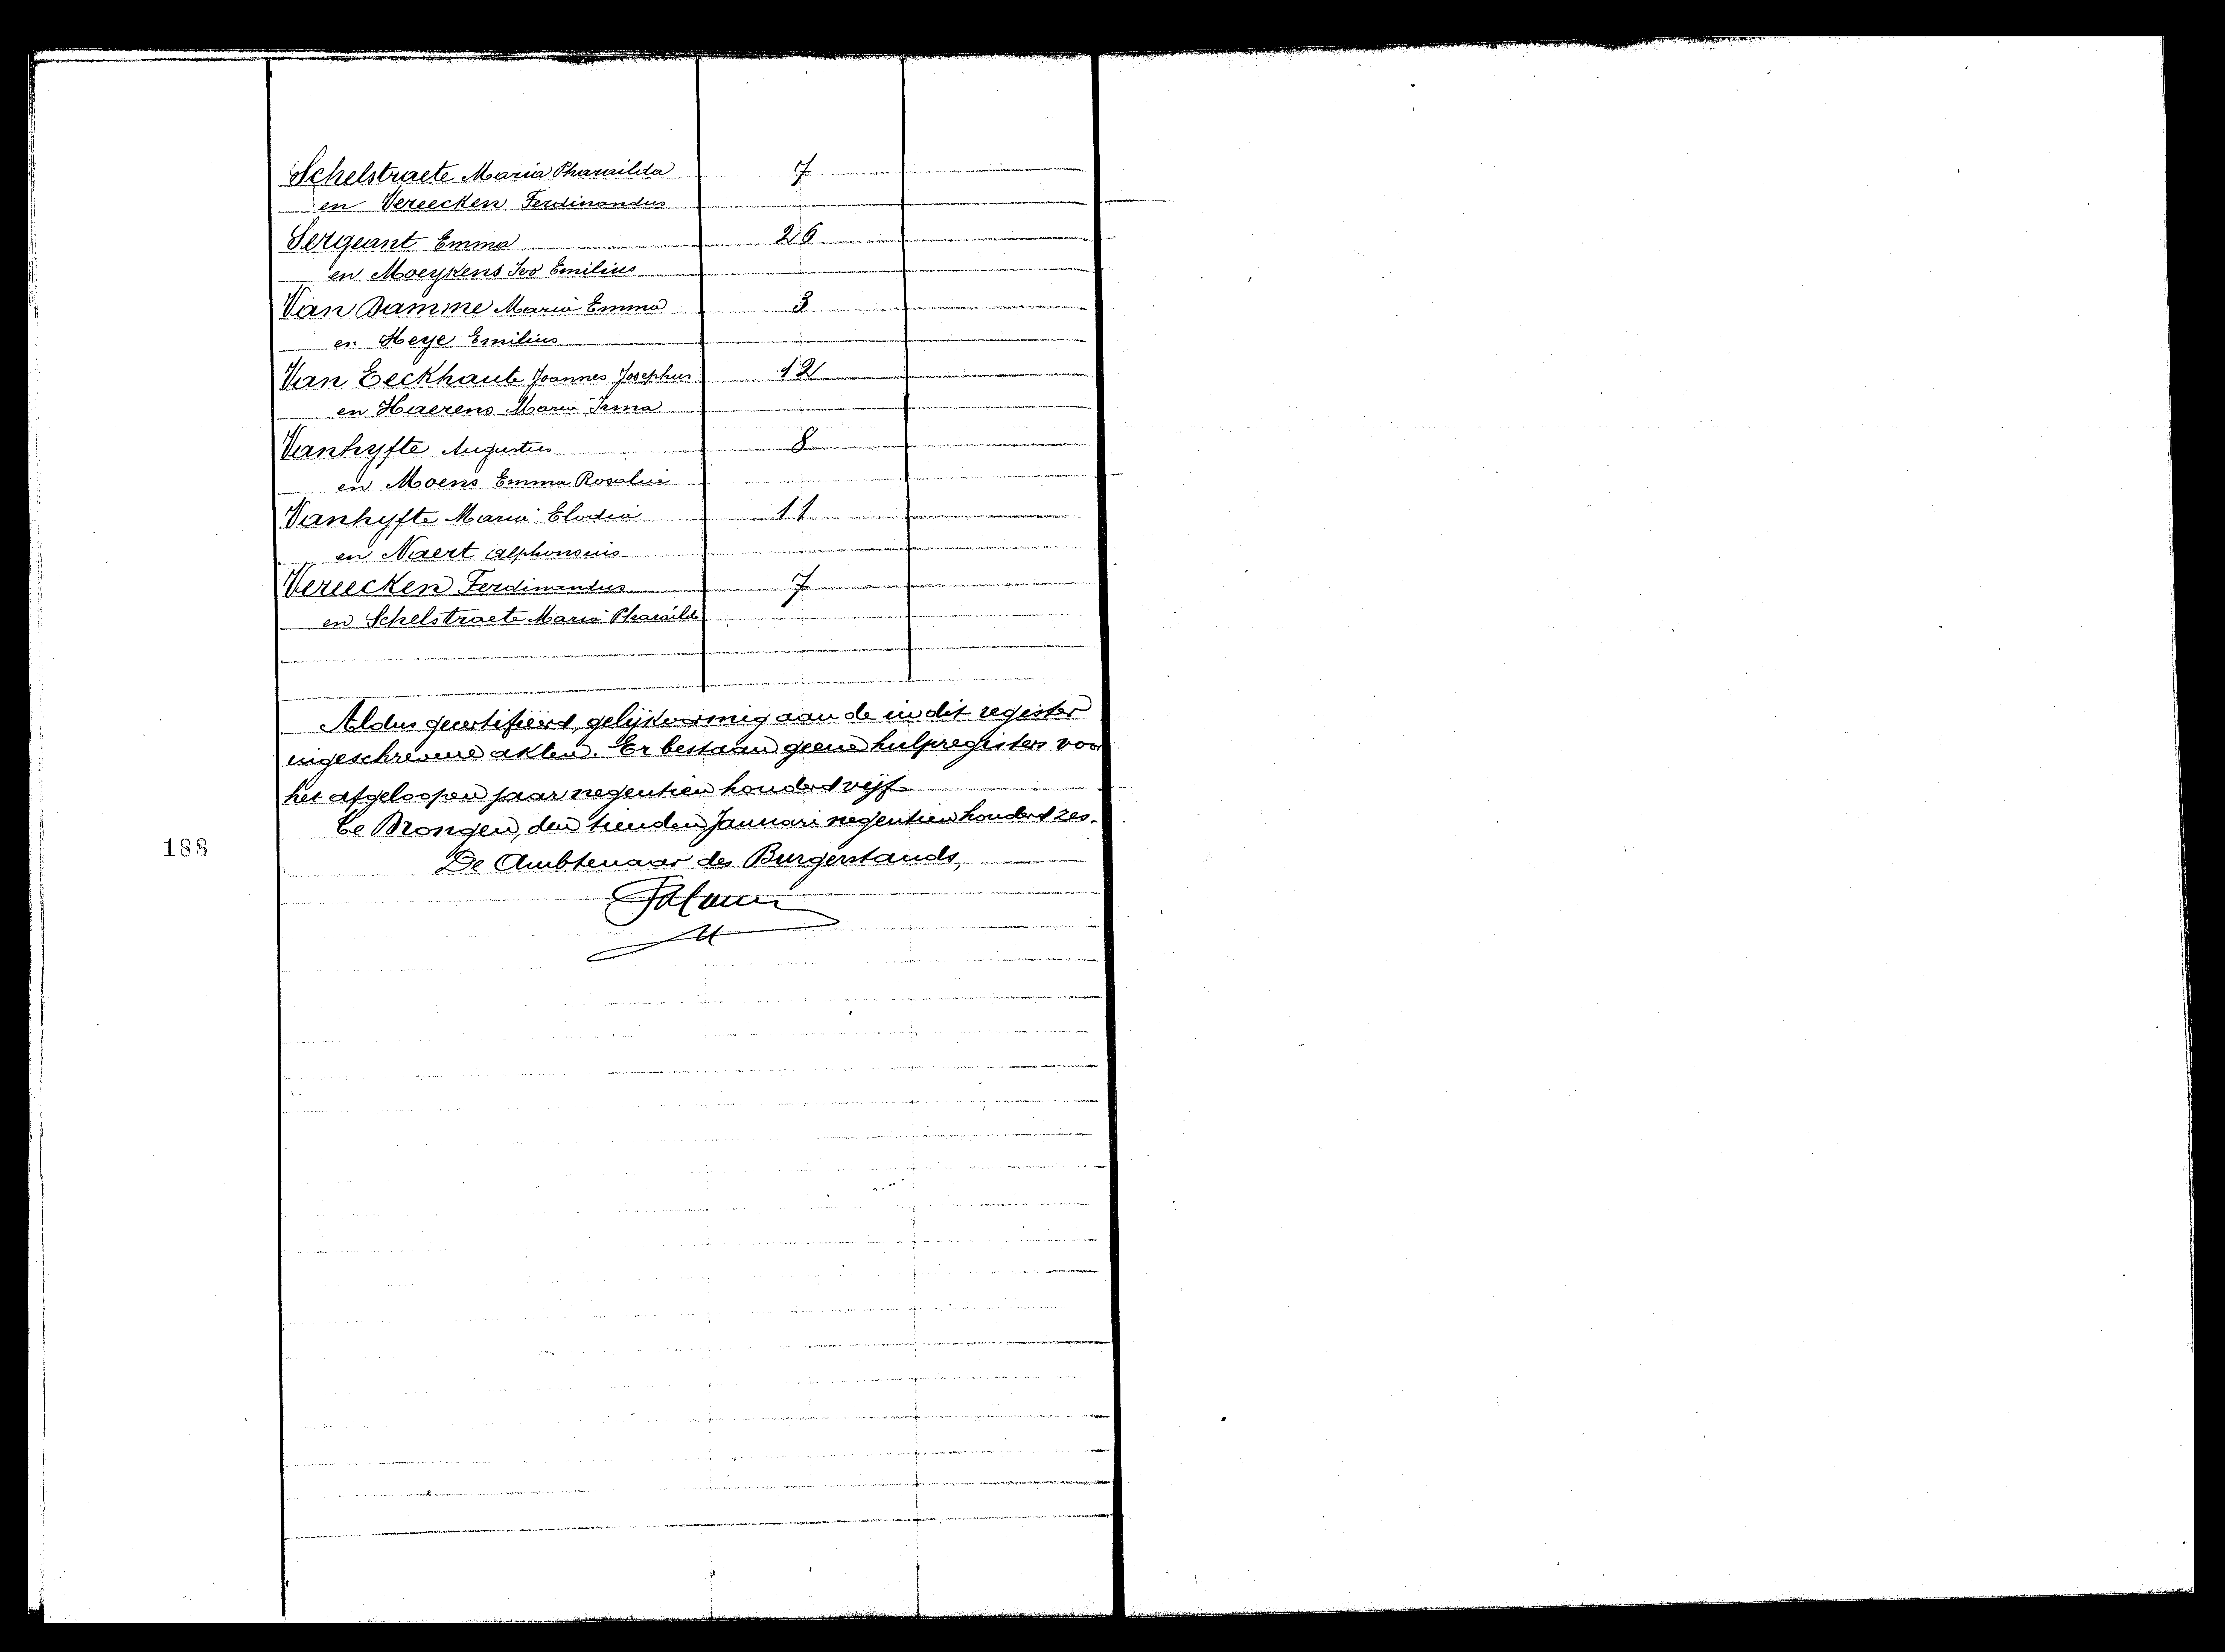 Schelstraete Maria Pharaïlda 7
en Vereecken Ferdinandus
Sergeant Emma 26
en Moeykens Ivo Emilius
Van Damme Maria Emma 3
en Heye Emilius
Van Eeckhaute Joannes Josephus 12
en Haerens Maria Irma
Vanhyfte Augustus 8
en Moens Emma Rosalia
Vanhyfte Maria Elodia 11
en Naert Alphonsius
Vereecken Ferdinandus 7
en Schelstraete Maria Pharaïlda
Aldus gecertifiëerd, gelijkvormig aan de in dit register
ingeschrevene akten. Er bestaan geene hulpregisters voor
het afgeloopen jaar negentien honderd vijf.
Te Drongen, den tienden Januari negentien honderd zes.
De Ambtenaar des Burgerstands,
188